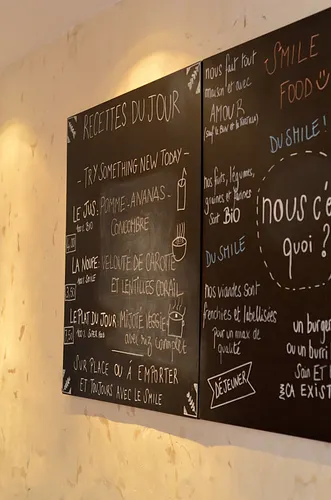 RECETTES DU JOUR
- TRY SOMETHING NEW TODAY -
LE JUS: POMME-ANANAS-
100% BIO
CONCOMBRE
LA NOUPE: VELOUTE DE CAROTTE
100% SMILE
ET LENTILLES CORAIL
LE PLAT DU JOUR: MIJOTE VEGGIE
avec riz complet
SUR PLACE OU À EMPORTER
ET TOUJOURS AVEC LE SMILE
nous fait tout
maison et avec
AMOUR
SMILE
FOOD
DU SMILE!
nos fruits, légumes,
graines et farines
Sont BIO
DU SMILE
nos viandes sont
françaises et labellisées
Pour un max de
qualité
DÉJEUNER
nous c'e
quoi ?
un burge
ou un burri
San ET
ÇA EXIST